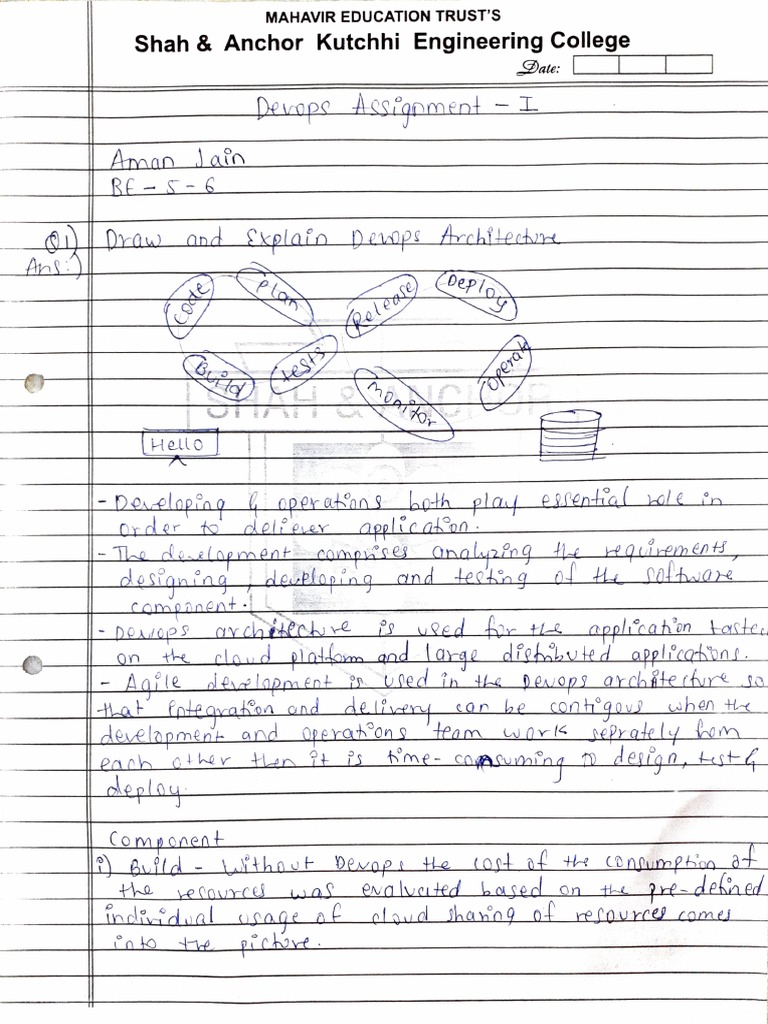 MAHAVIR EDUCATION TRUST'S
Shah & Anchor Kutchhi Engineering College
Date:
Devops Assignment - I
Aman Jain
BE - 5 - 6
Q1) Draw and Explain Devops Architecture
Ans:)
Code Plan Release Deploy
Build tests monitor Operate
SHAH & ANCHOR
Hello
- Developing & operations both play essential role in
order to deliever application.
- The development comprises analyzing the requirements,
designing, developing and testing of the software
component.
- Devops architecture is used for the application
on the cloud platform and large distributed applications.
- Agile development is used in the Devops architecture so
that integration and delivery can be contigous when the
development and operations team work seprately from
each other then it is time-consuming to design, test &
deploy.
Component
i) Build - Without Devops the cost of the consumption of
the resources was evalucited based on the pre-defined
individual usage of cloud sharing of resources comes
into the picture.